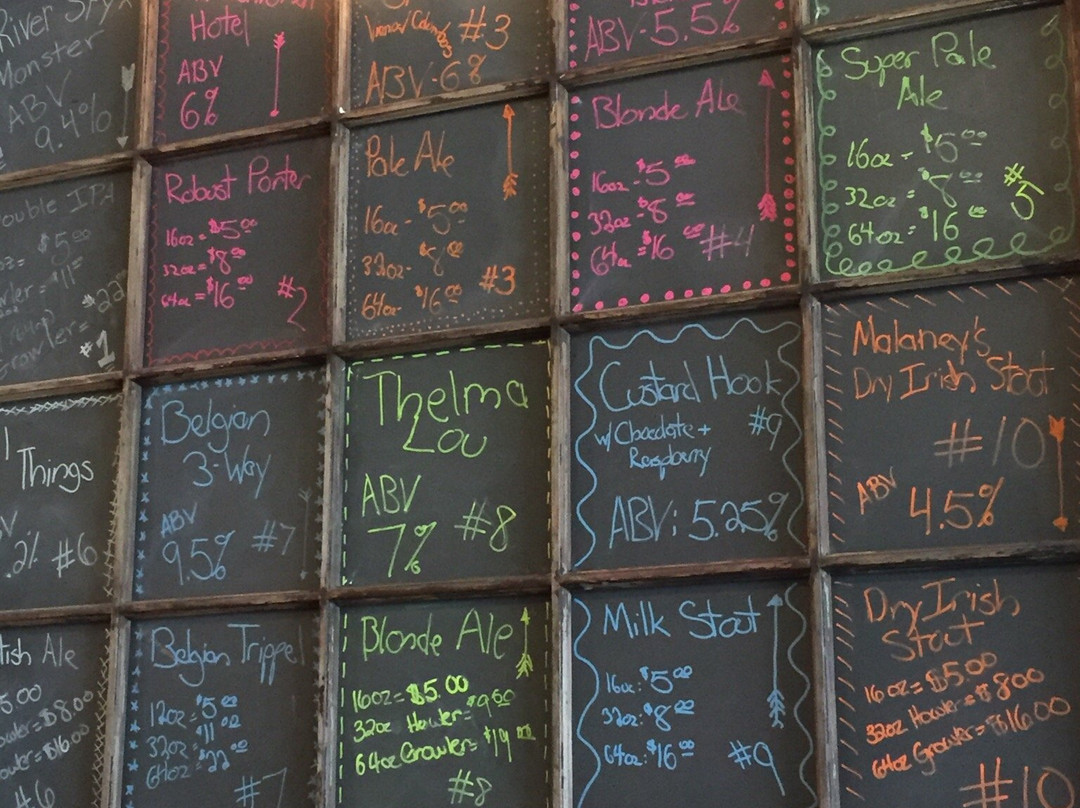 River Styx
Monster
ABV
9.4%
Hotel
ABV
6%
#3
ABV-6%
ABV-5.5%
Super Pale
Ale
16oz - $5.00
32oz = $8.00
64oz = $16.00
#5
Double IPA
$5.00
$11.00
Growler = $22
#1
Robust Porter
16oz = $5.00
32oz = $8.00
64oz = $16.00
#2
Pale Ale
16oz - $5.00
32oz - $8.00
64oz - $16.00
#3
Blonde Ale
16oz - $5.00
32oz - $8.00
64oz = $16.00
#4
Things
.2% #6
Belgian
3-Way
ABV
9.5% #7
Thelma
Lou
ABV
7% #8
Custard Hook
w/ Chocolate + #9
Raspberry
ABV: 5.25%
Malaney's
Dry Irish Stout
#10
ABV 4.5%
tish Ale
5.00
owler = $8.00
owler = $16.00
#6
Belgian Trippel
12oz = $5.00
32oz = $11.00
64oz = $22.00
#7
Blonde Ale
16oz = $5.00
32oz Howler = $9.50
64oz Growler = $19.00
#8
Milk Stout
16oz: $5.00
32oz: $8.00
64oz: $16.00
#9
Dry Irish
Stout
16oz = $5.00
32oz Howler = $8.00
64oz Growler = $16.00
#10